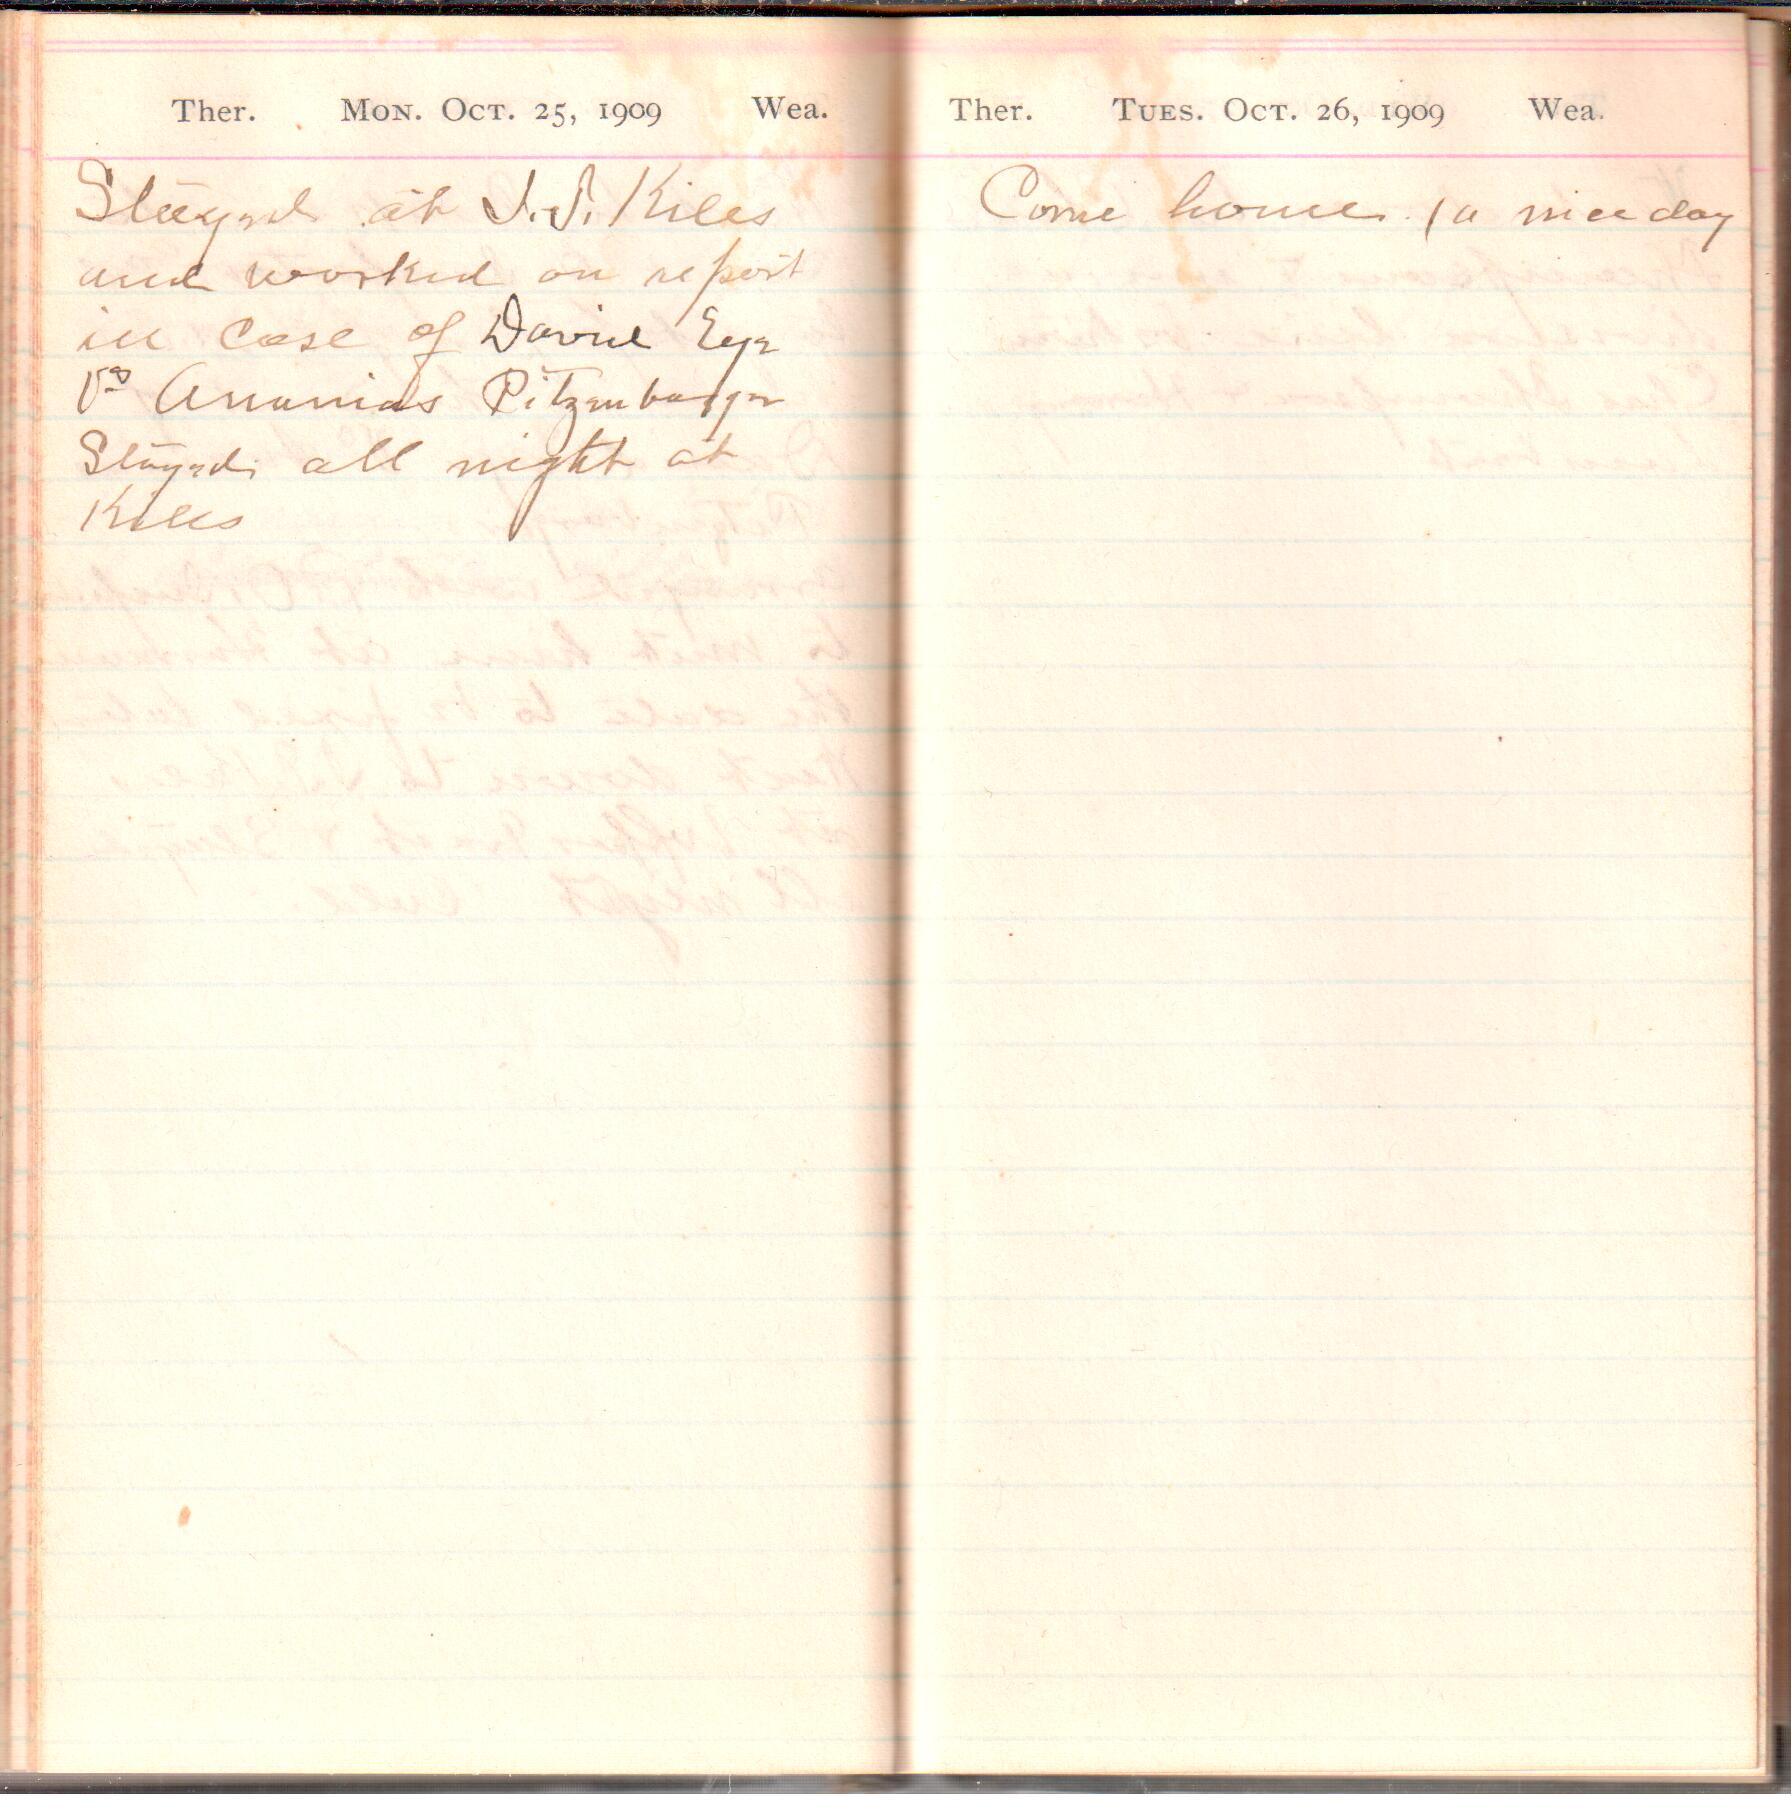 Ther. Mon. Oct. 25, 1909 Wea.
Stayed at J.J. Kiles
and worked on report
in case of David Eye
vs Ananias Pitzenbarger
Stayed all night at
Kiles
Ther. Tues. Oct. 26, 1909 Wea.
Come home. (a nice day